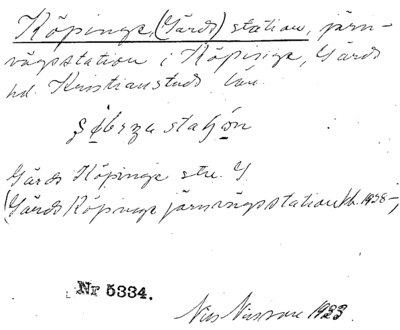 Köpinge, (Gärds) station, järn-
vägsstation i Köpinge, Gärds
hd. Kristianstads län.
stahón
Gärds Köpinge stn. G
(Gärds Köpinge järnvägsstation Kb. 1938-,
Nr 5334.
Nils Nilsson 1923